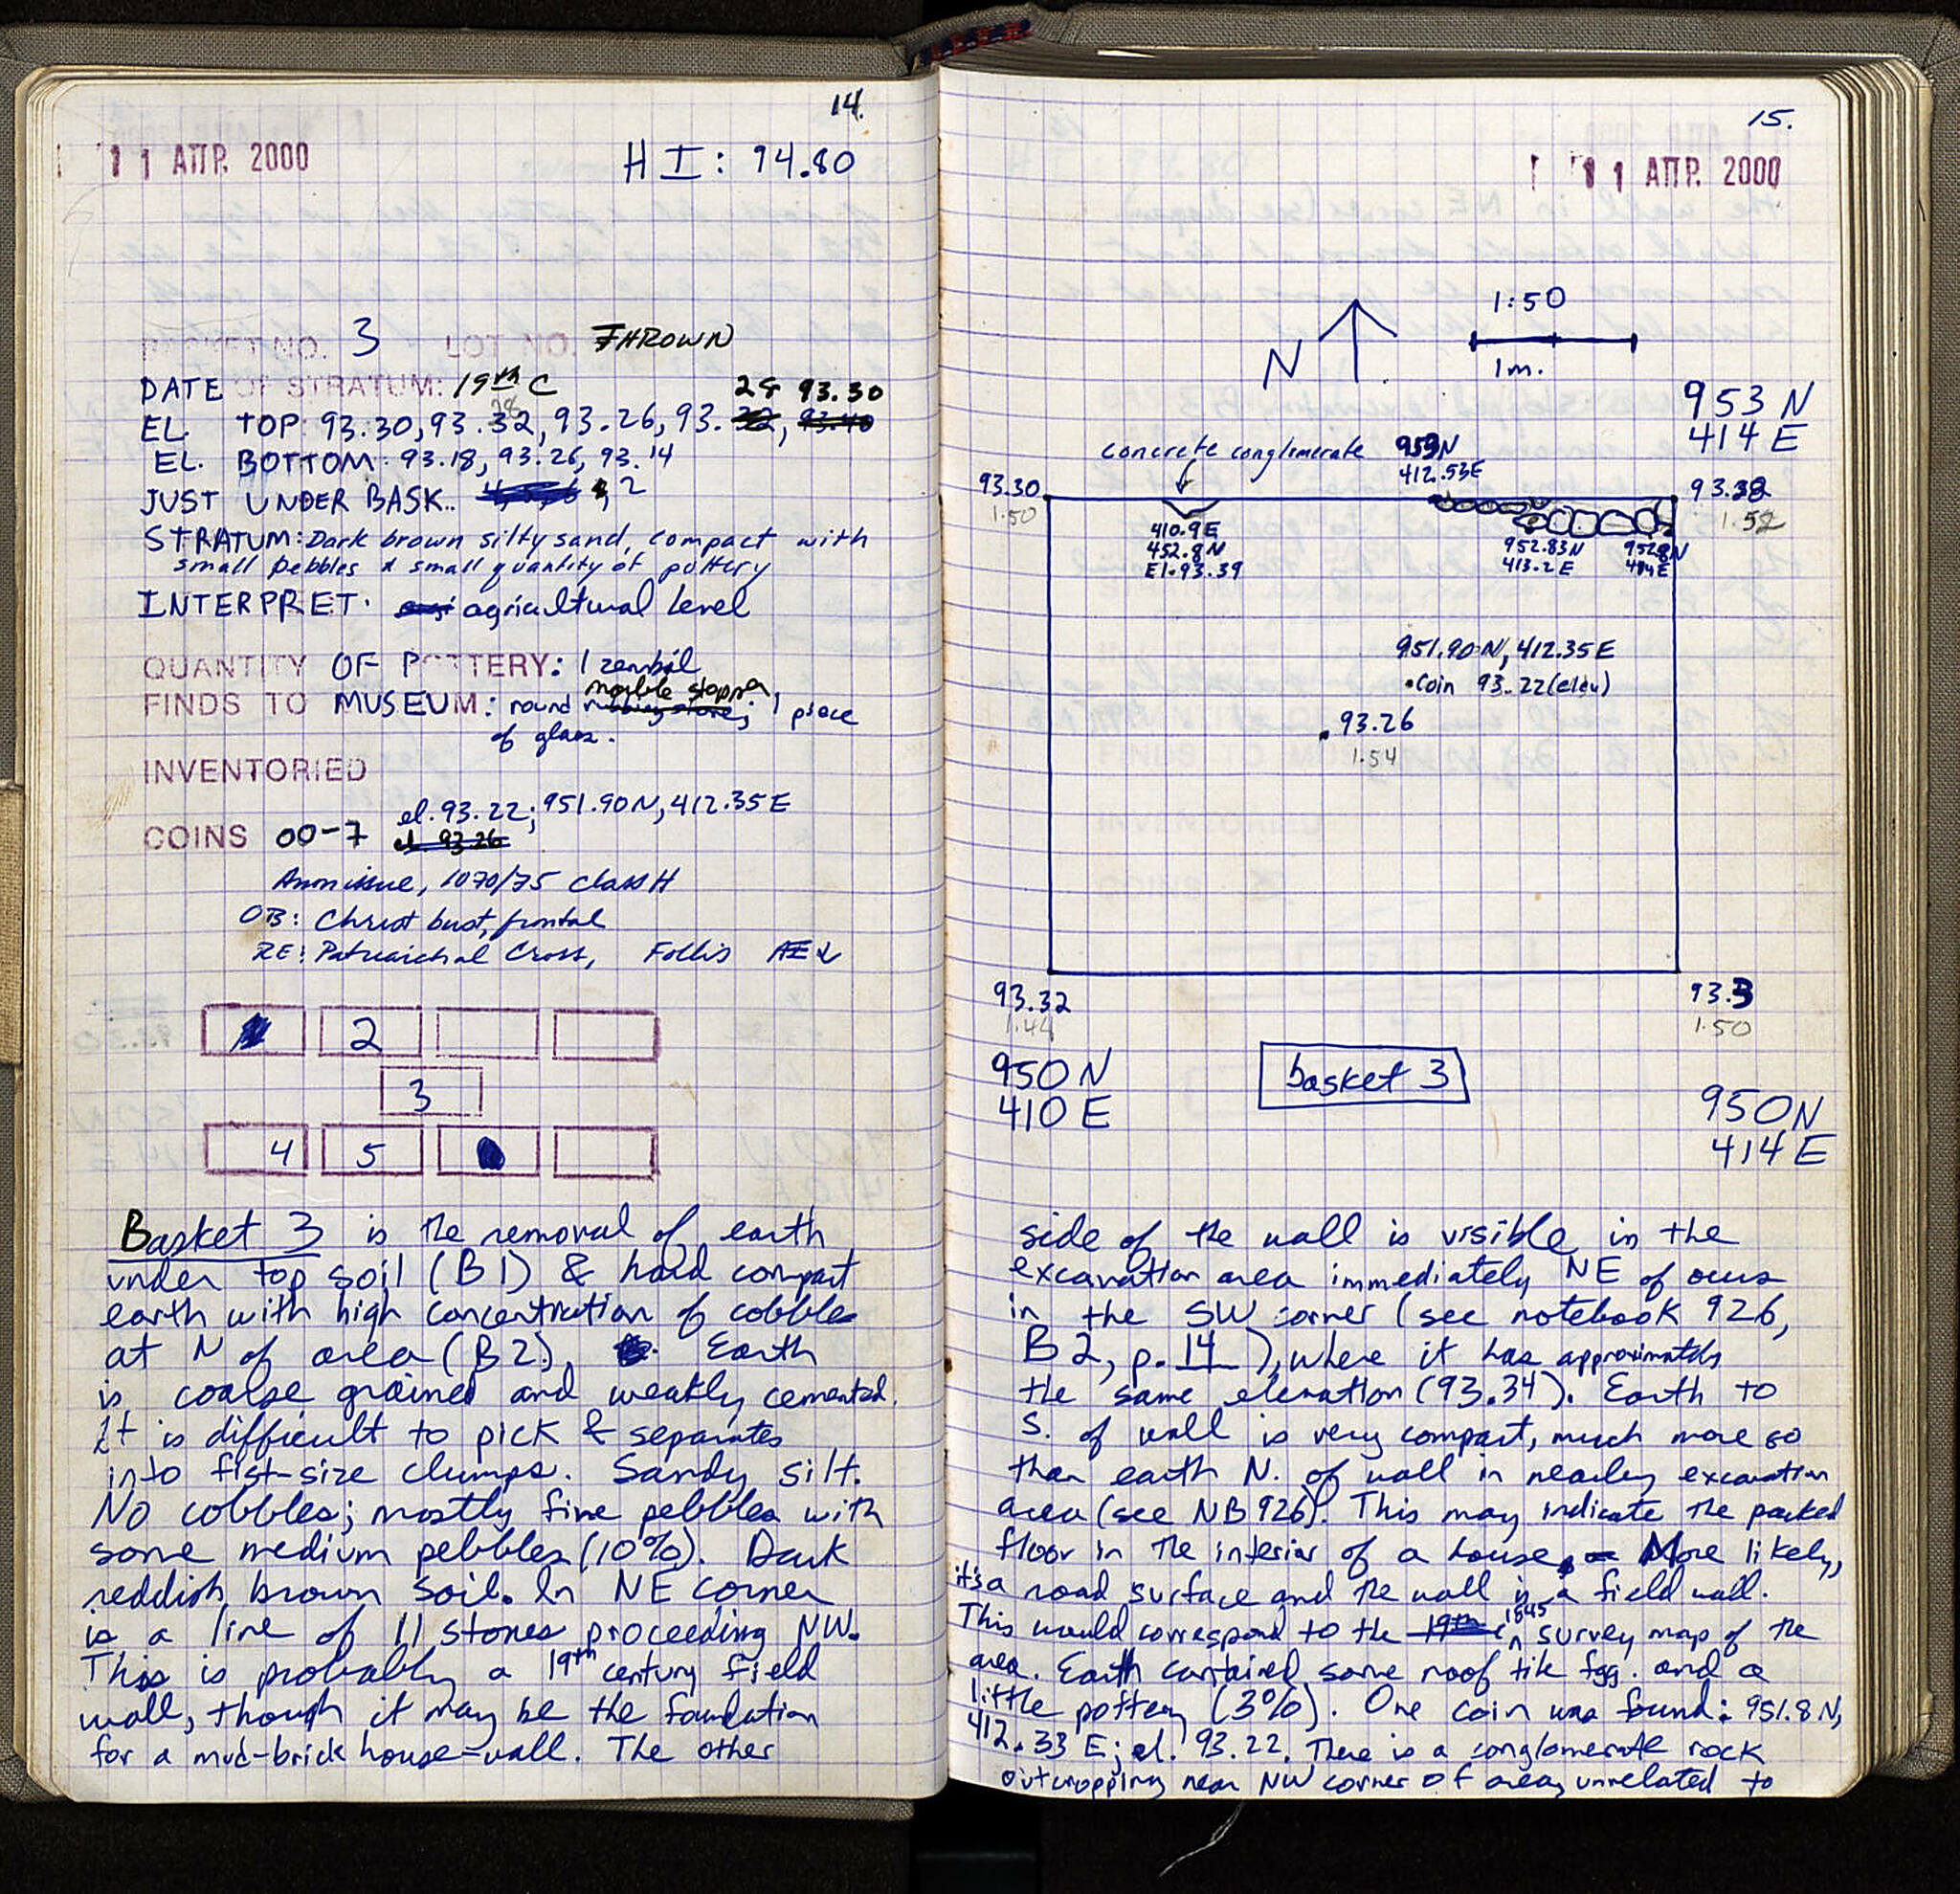 14.
11 ΑΠΡ. 2000
HI: 94.80
BASKET NO. 3 LOT NO. THROWN
DATE OF STRATUM: 19th C
28 93.30
EL. TOP: 93.30, 93.32, 93.26, 93.
EL. BOTTOM: 93.18, 93.26, 93.14
JUST UNDER BASK.. 2
STRATUM: Dark brown silty sand, compact with
small pebbles & small quantity of pottery
INTERPRET. agricultural level
QUANTITY OF POTTERY: 1 zembil
marble stopper,
FINDS TO MUSEUM: round rubbing stone; 1 piece
of glass.
INVENTORIED
el. 93.22; 951.90N, 412.35E
COINS 00-7 el. 93.26
Anon issue, 1070/75 Class H
OB: Christ bust, frontal
RE: Patriarchal Cross, Follis AE
2
3
4 5
Basket 3 is the removal of earth
under top soil (B1) & hard compact
earth with high concentration of cobbles
at N of area (B2), Earth
is coarse grained and weakly cemented.
It is difficult to pick & separates
into fist-size clumps. Sandy silt.
No cobbles; mostly fine pebbles with
some medium pebbles (10%). Dark
reddish brown soil. In NE corner
is a line of 11 stones proceeding NW.
This is probably a 19th century field
wall, though it may be the foundation
for a mud-brick house-wall. The other
15.
11 ΑΠΡ. 2000
1:50
N
1m.
953 N
414 E
concrete conglomerate
953N
412.53E
93.30
1.50
93.28
1.52
410.9E
452.8N
El. 93.39
952.83N
413.2E
952.8N
414E
951.90N, 412.35E
•Coin 93.22 (elev)
.93.26
1.54
93.32
1.44
93.3
1.50
950 N
410 E
basket 3
950N
414E
side of the wall is visible in the
excavation area immediately NE of ours
in the SW corner (see notebook 926,
B2, p. 14), where it has approximately
the same elevation (93.34). Earth to
S. of wall is very compact, much more so
than earth N. of wall in nearby excavation
area (see NB 926). This may indicate the packed
floor in the interior of a house, or More likely,
it's a road surface and the wall is a field wall.
This would correspond to the 19th c 1845 survey map of the
area. Earth contained some roof tile fgg. and a
little pottery (3%). One coin was found: 951.8 N,
412.33 E; el. 93.22. There is a conglomerate rock
outcropping near NW corner of area, unrelated to